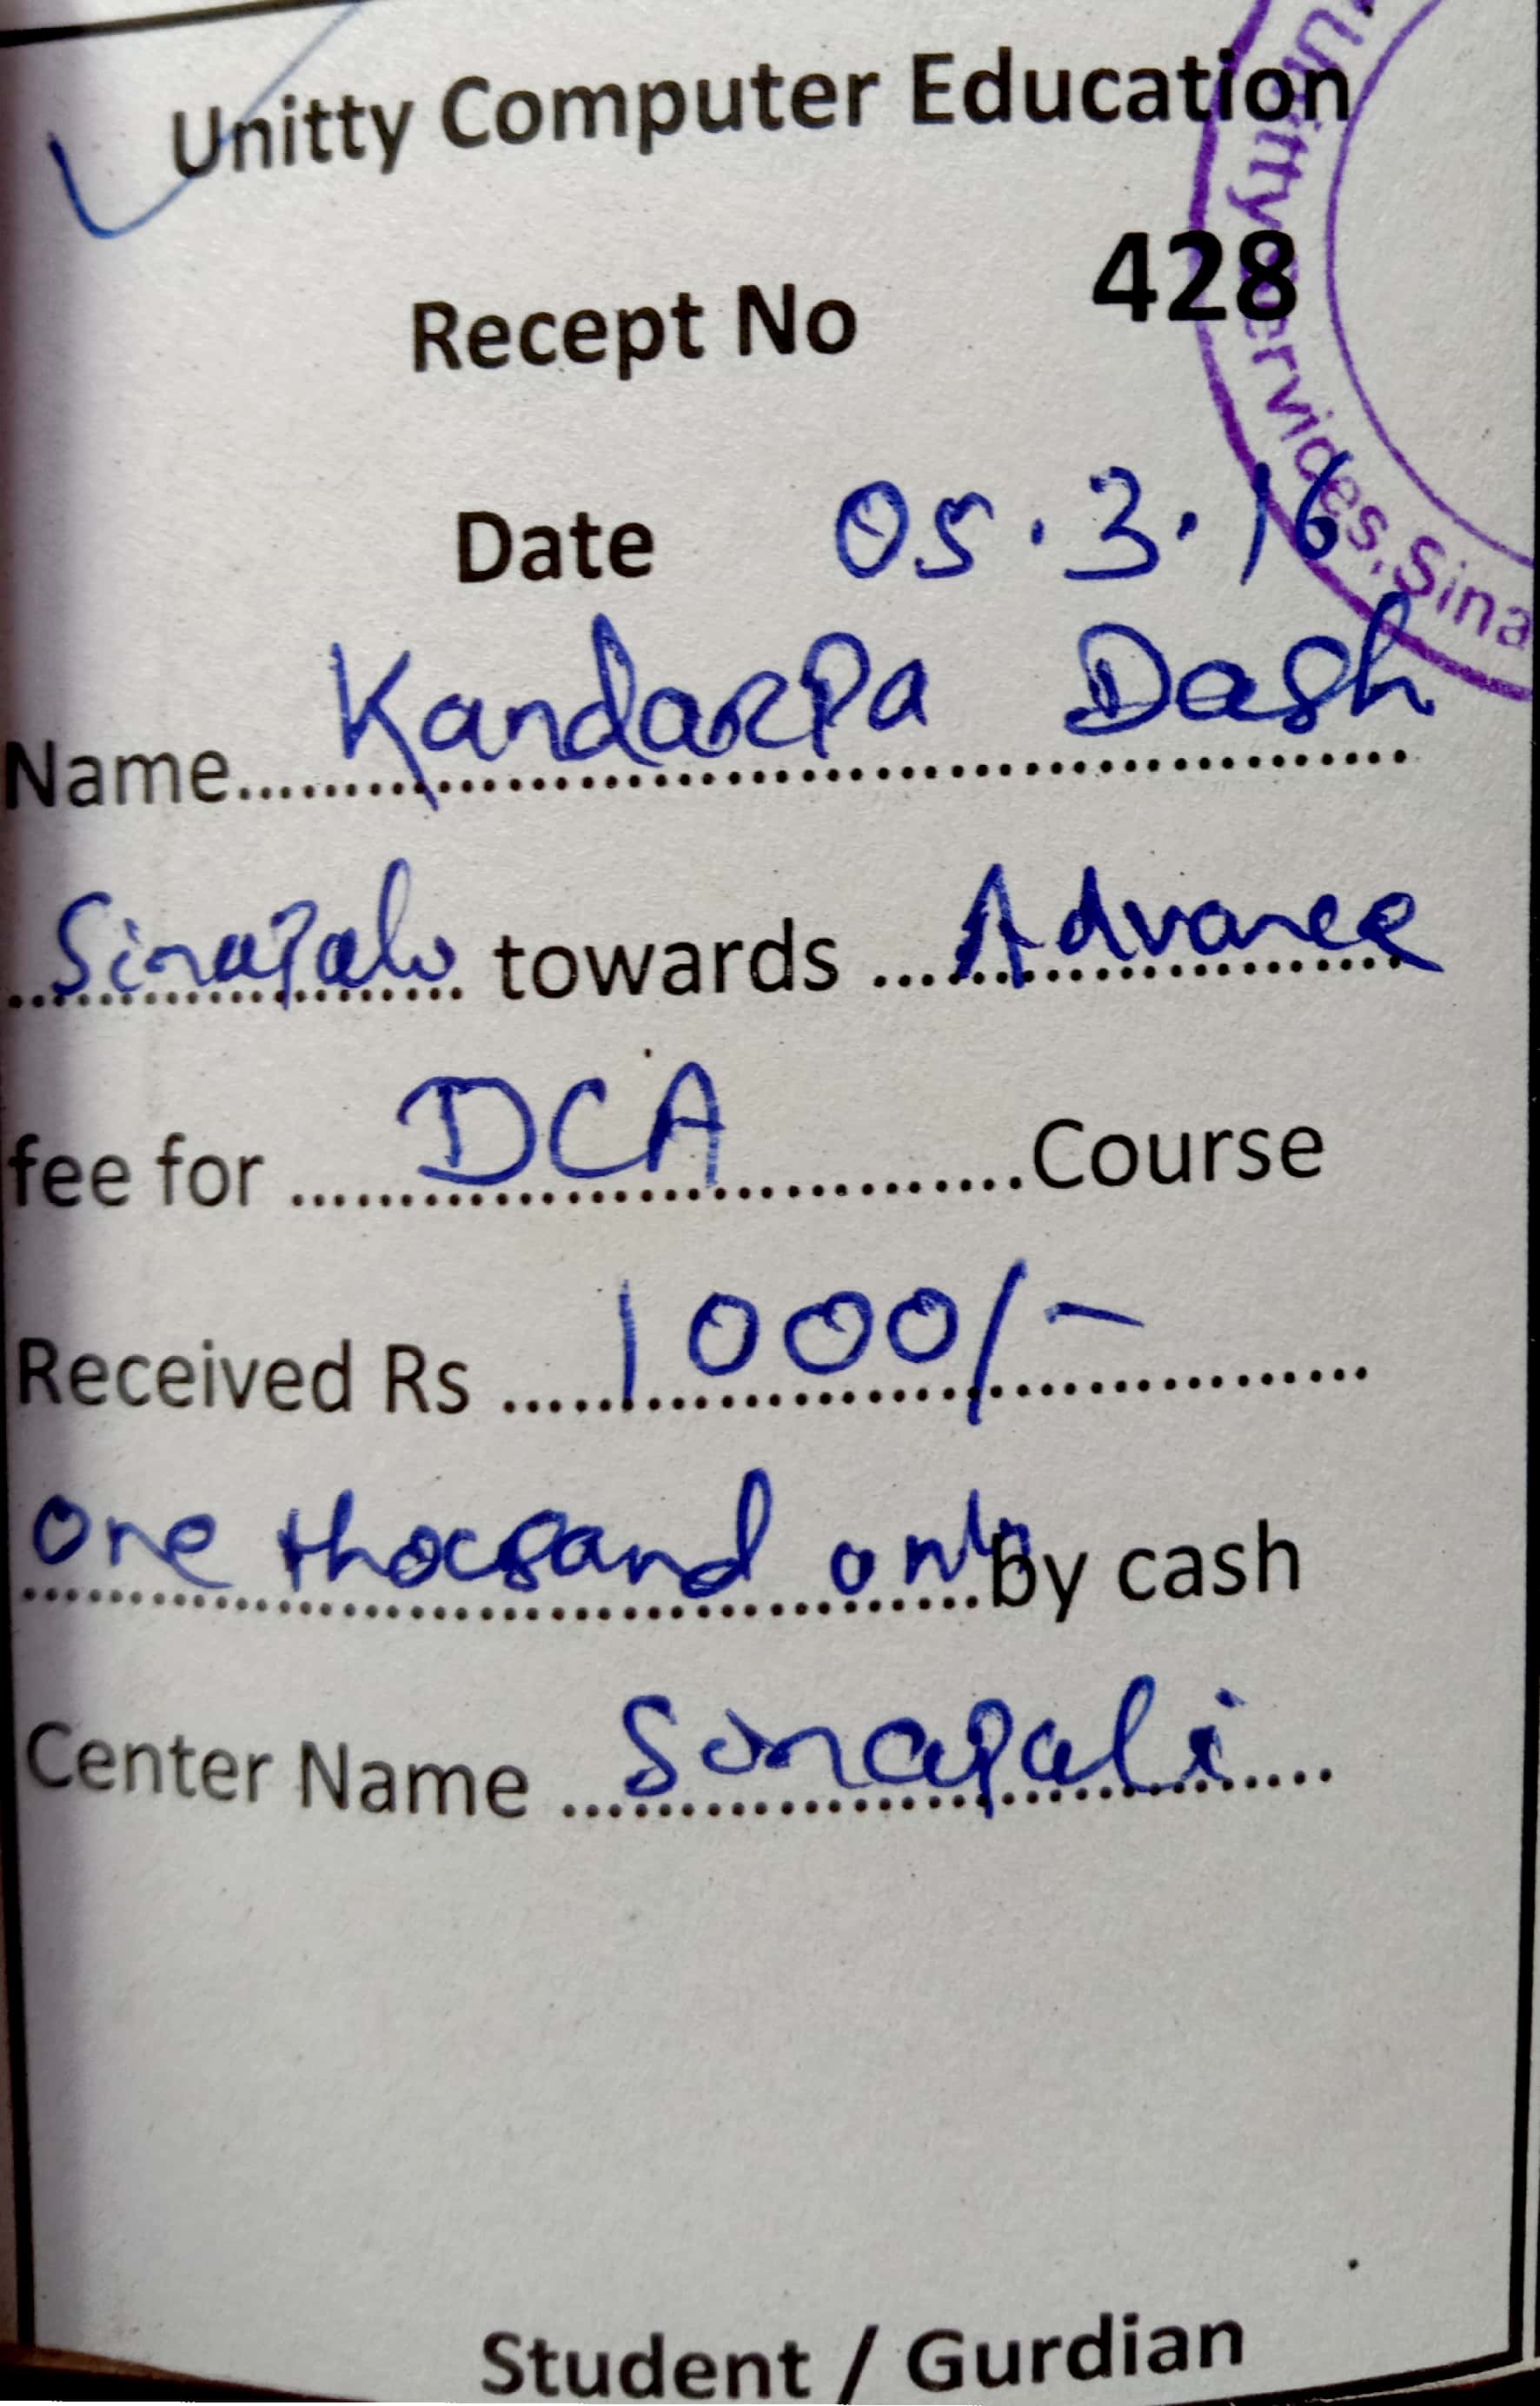 Unitty Computer Education
Recept No 428
Date 05.3.16
Name Kandarpa Dash
Sinapali towards Advance
fee for DCA Course
Received Rs 1000/-
One thousand only by cash
Center Name Sinapali
Student / Gurdian
Unitty Services, Sina